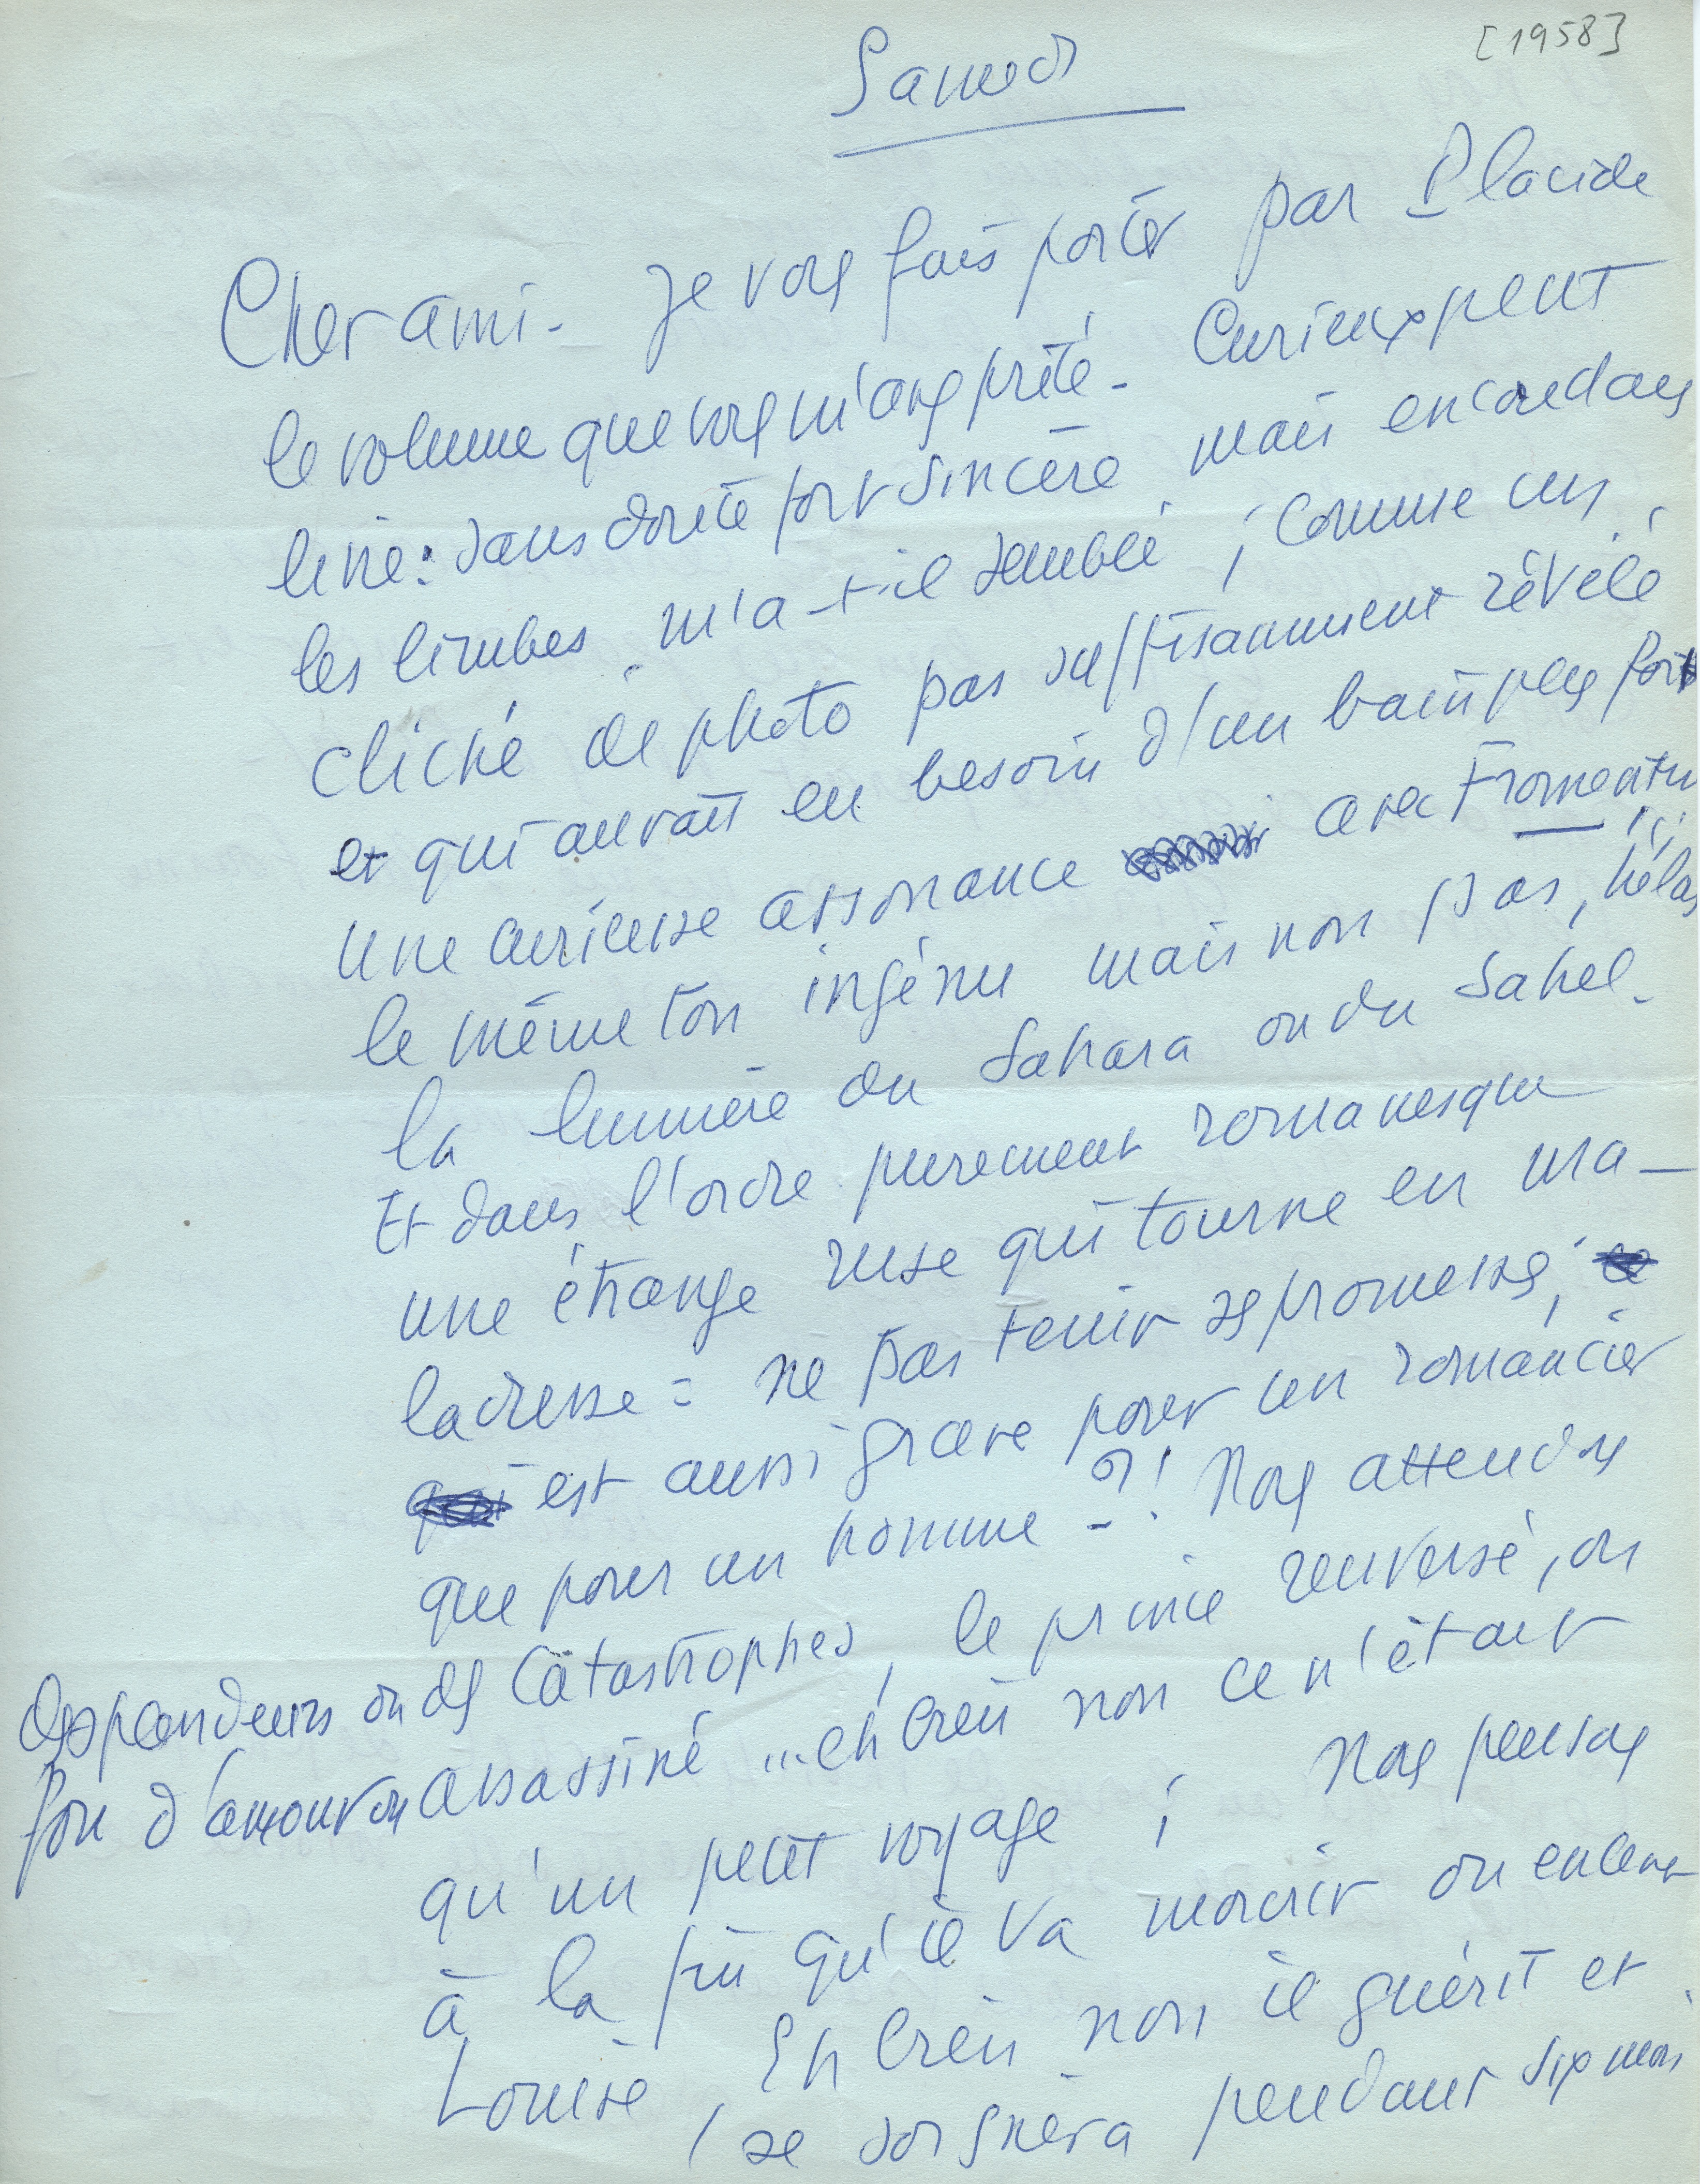 [1958]
Samedi
Cher ami - Je vous fais porter par Placide
le volume que vous m'avez prêté - Curieux petit
livre : sans doute fort sincère mais encore dans
les limbes, m'a-t-il semblé ; comme un
cliché de photo pas suffisamment révélé
et qui aurait eu besoin d'un bain plus fort
une curieuse assonance avec Fromentin ;
le même ton ingénu mais non pas, hélas
la lumière du Sahara ou du Sahel -
Et dans l'ordre purement romanesque
une étrange ruse qui tourne en ma-
ladresse : ne pas tenir ses promesses,
est aussi grave pour un romancier
que pour un homme - ?! Nous attendons
des splendeurs ou des Catastrophes, le prince renversé, ou
fou d'amour ou assassiné ... eh bien non ce n'était
qu'un petit voyage ; Nous pensons
à la fin qu'il va mourir ou enlever
Louise, Eh bien non il guérit et
se soignera pendant six mois